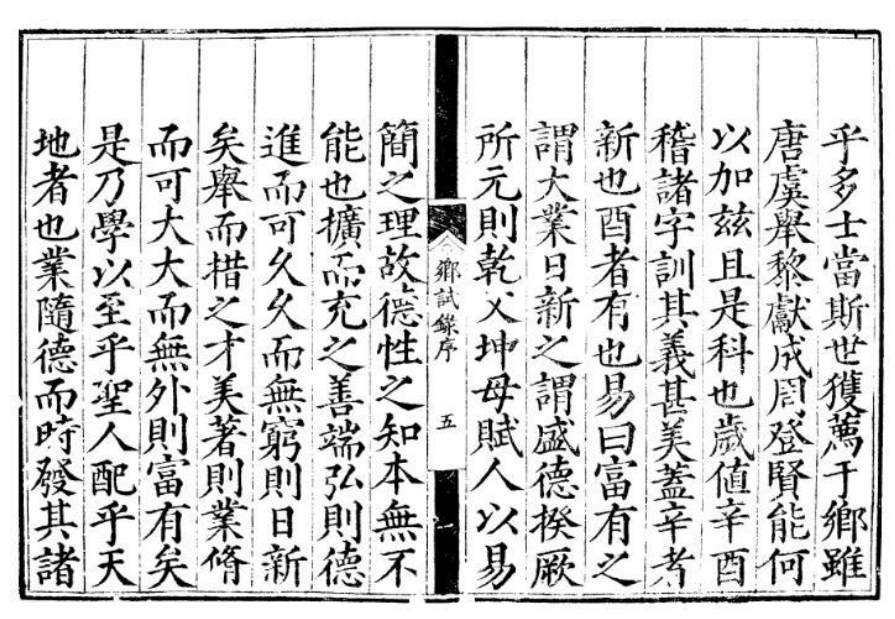 乎多士當斯世獲薦于鄉雖
唐虞舉黎獻成周登賢能何
以加兹且是科也歲值辛酉
稽諸字訓其義甚美蓋辛者
新也酉者有也易曰富有之
謂大業日新之謂盛德揆厥
所元則乾父坤母賦人以易
鄉試錄序
五
簡之理故德性之知本無不
能也擴而充之善端弘則德
進而可久久而無窮則日新
矣舉而措之才美著則業脩
而可大大而無外則富有矣
是乃學以至乎聖人配乎天
地者也業隨德而時發其諸